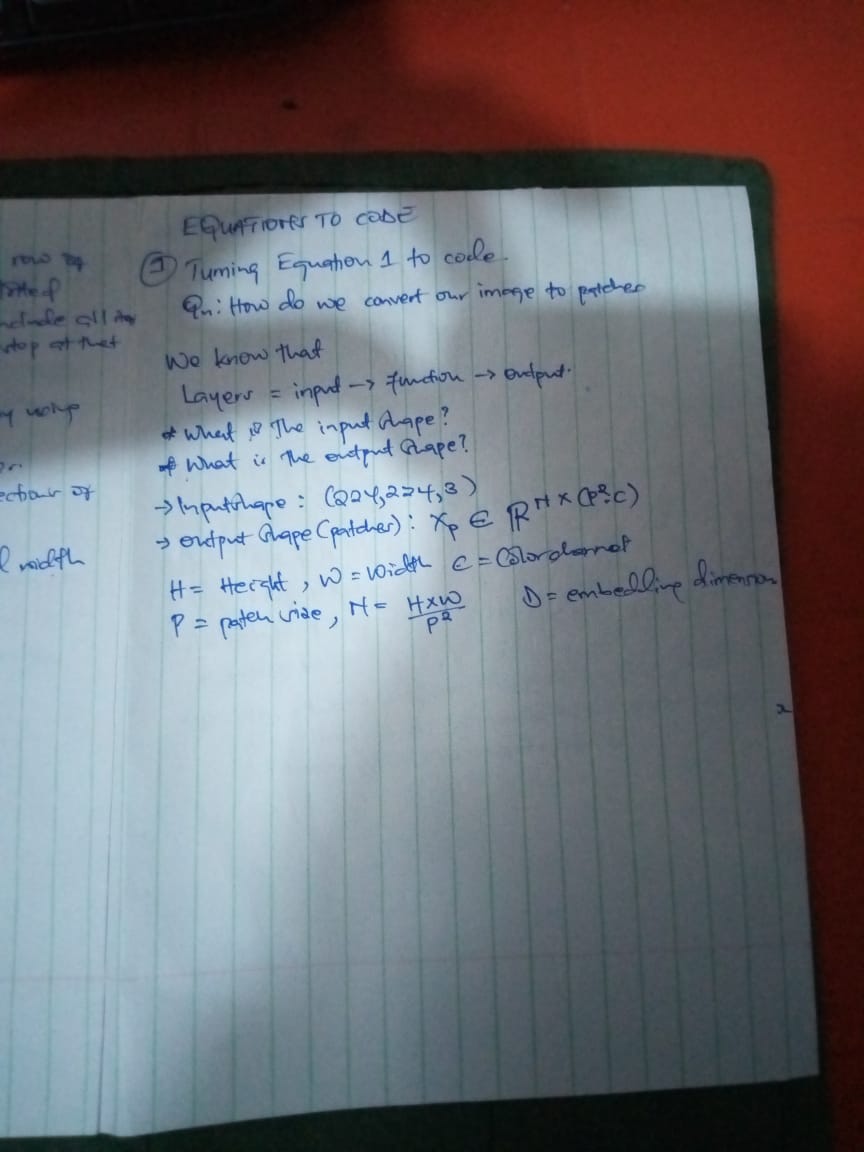 row
include all
stop at that
width
EQUATIONS TO CODE
① Turning Equation 1 to code.
Qn: How do we convert our image to patches
We know that
Layers = input -> function -> output.
* What is The input shape?
* What is the output shape?
-> Input shape: (224,224,3)
-> output shape (patches): Xp ∈ ℝ^N×(P²·C)
H = Height, W = Width C = Color channel
P = patch size, N = H×W/P² D = embedding dimension